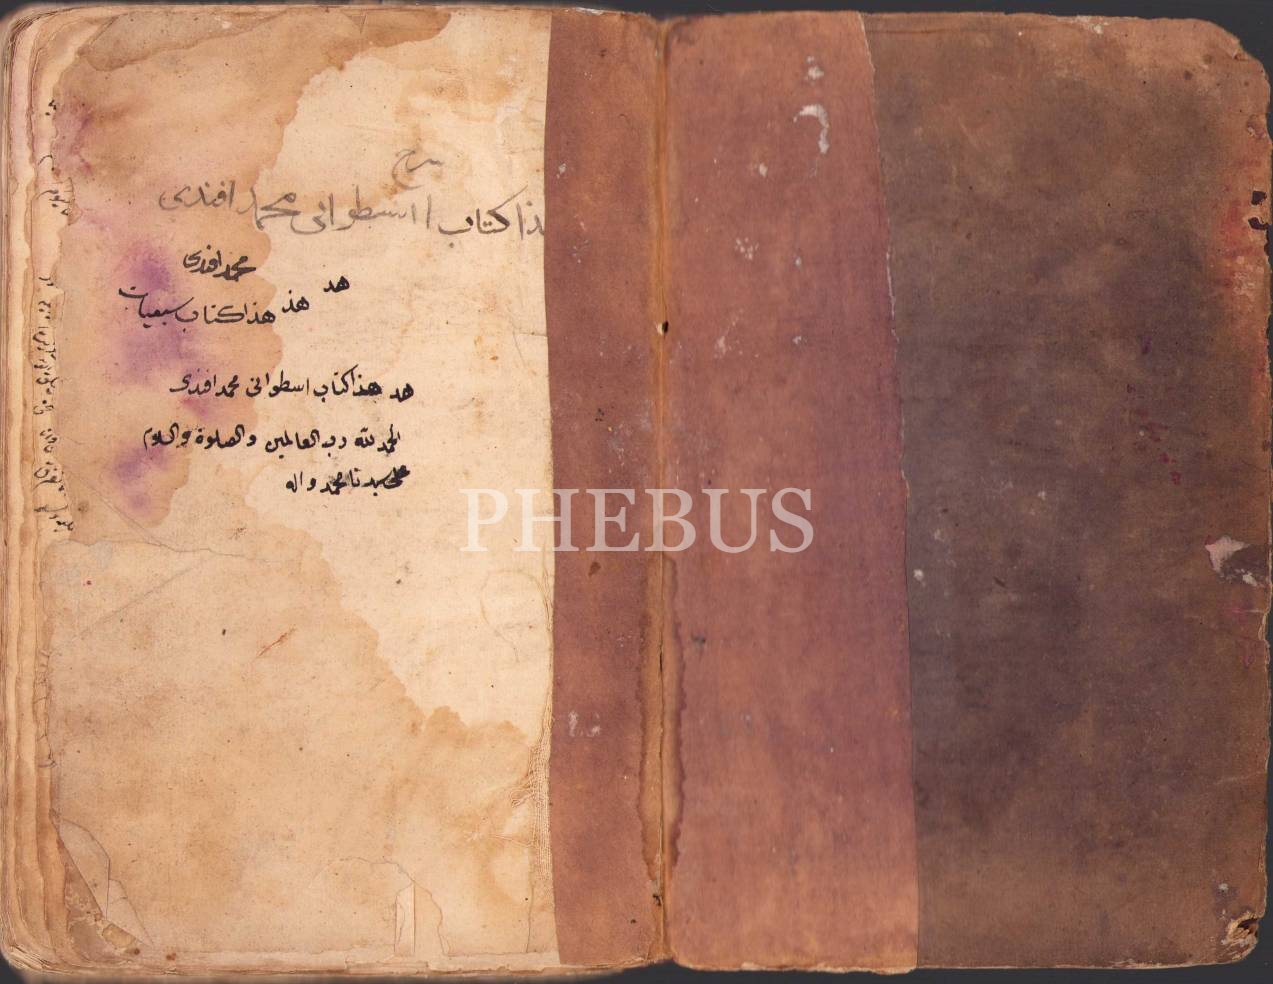 شرح
هذا كتاب اسطوانى محمد افندى
محمد افندى
هد
هذ هذا كتاب سبعيات
هد هذا كتاب اسطوانى محمد افندى
الحمد لله رب العالمين والصلوة والسلام
على سيدنا محمد واله
PHEBUS